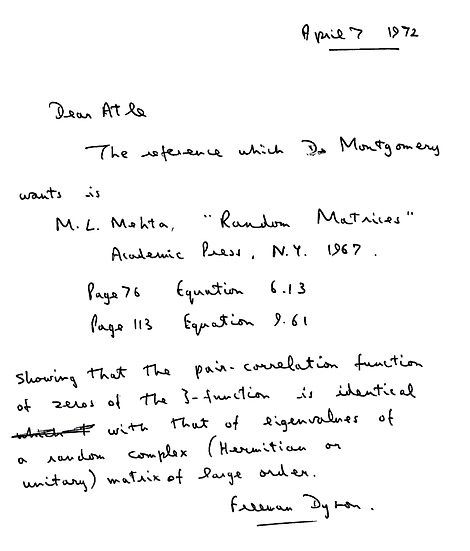 April 7 1972
Dear Atle
The reference which Dr Montgomery
wants is
M. L. Mehta, "Random Matrices"
Academic Press, N.Y. 1967.
Page 76 Equation 6.13
Page 113 Equation 9.61
showing that the pair-correlation function
of zeros of the ζ-function is identical
with that of eigenvalues of
a random complex (Hermitian or
unitary) matrix of large order.
Freeman Dyson.